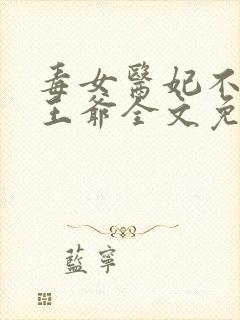 毒女醫妃不
王爺全文免
藍寧